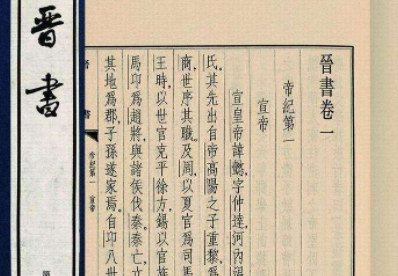 晉書卷一
帝紀第一
宣帝
宣皇帝諱懿,字仲達,河內溫
氏,其先出自帝高陽之子重黎,爲
商,世序其職。及周,以夏官爲司馬
王時,以世官克平徐方,錫以官族
馬卬爲趙將,與諸侯伐秦。秦亡,立
其地爲郡,子孫遂家焉。自卬八世
書
帝紀第一 宣帝
晋書
第